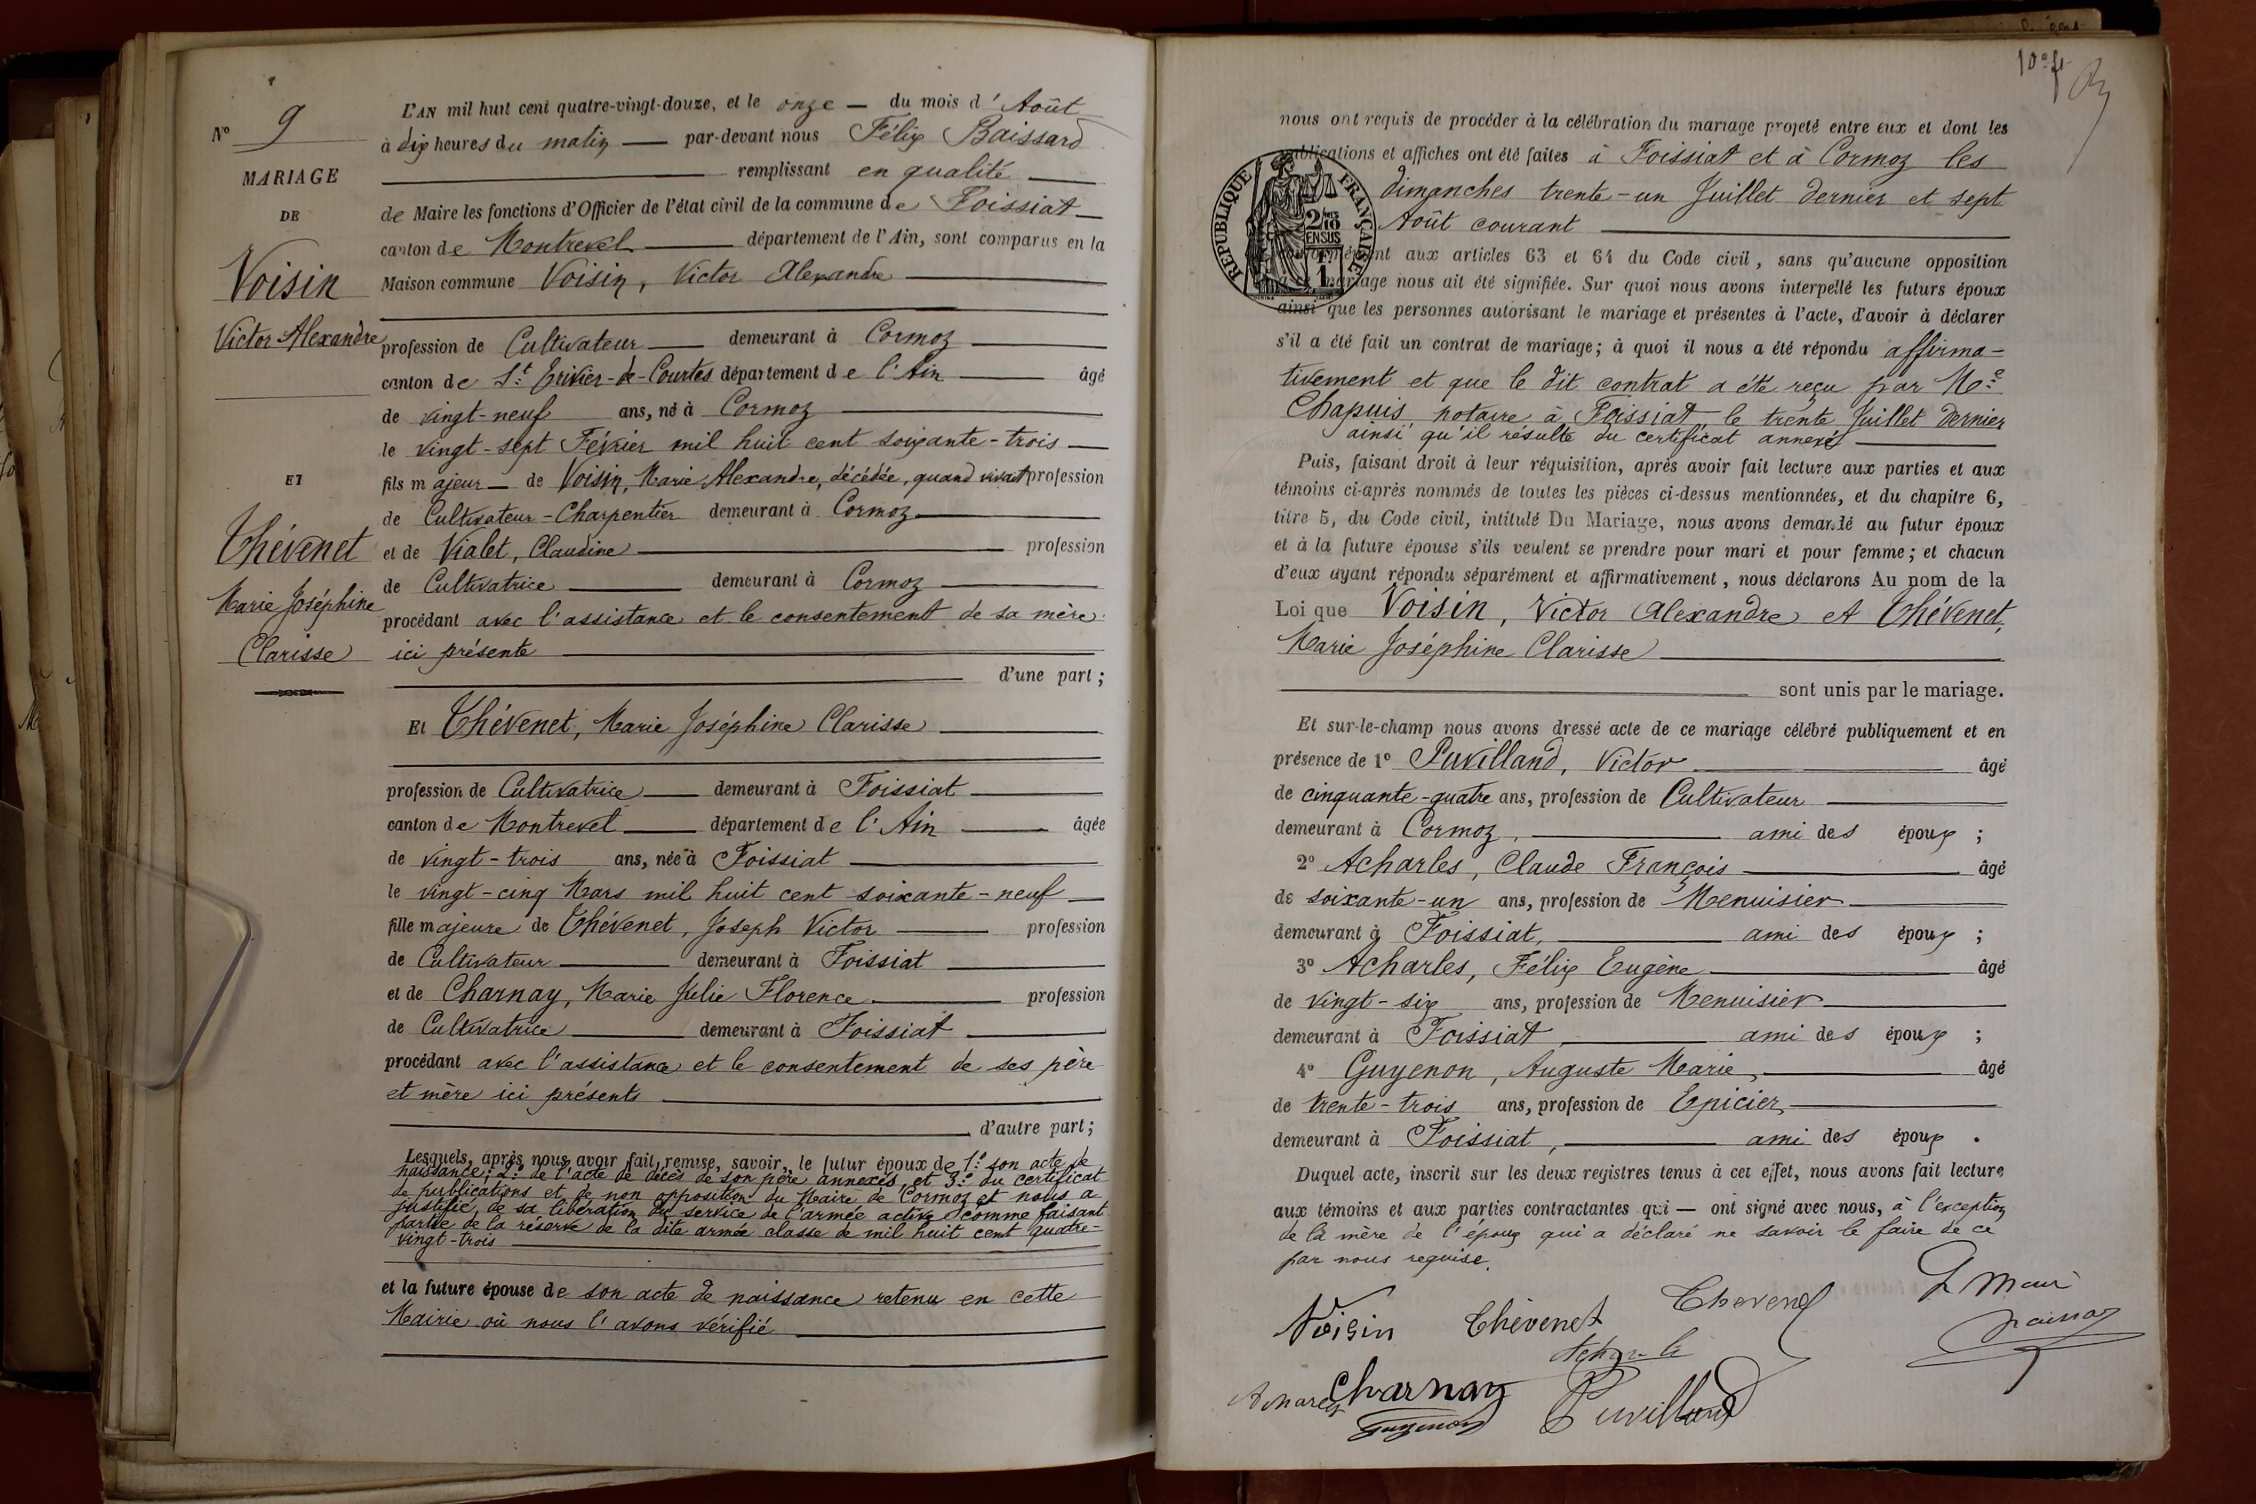 N° 9
MARIAGE
DE
Voisin
Victor Alexandre
ET
Thévenet
Marie Joséphine
Clarisse
L'AN mil huit cent quatre-vingt-douze, et le onze — du mois d'Août
à dix heures du matin — par-devant nous Félix Baissard
remplissant en qualité
de Maire les fonctions d'Officier de l'état civil de la commune de Foissiat
canton de Montrevel département de l'Ain, sont comparus en la
Maison commune Voisin, Victor Alexandre
profession de Cultivateur demeurant à Cormoz
canton de St. Trivier-de-Courtes département de l'Ain âgé
de vingt-neuf ans, né à Cormoz
le vingt-sept Février mil huit cent soixante-trois
fils majeur de Voisin, Marie Alexandre, décédée, quand vivait profession
de Cultivateur-Charpentier demeurant à Cormoz
et de Vialet, Claudine profession
de Cultivatrice demeurant à Cormoz
procédant avec l'assistance et le consentement de sa mère
ici présente
d'une part;
Et Thévenet, Marie Joséphine Clarisse
profession de Cultivatrice demeurant à Foissiat
canton de Montrevel département de l'Ain âgée
de vingt-trois ans, née à Foissiat
le vingt-cinq Mars mil huit cent soixante-neuf
fille majeure de Thévenet, Joseph Victor profession
de Cultivateur demeurant à Foissiat
et de Charnay, Marie Julie Florence profession
de Cultivatrice demeurant à Foissiat
procédant avec l'assistance et le consentement de ses père
et mère ici présents
d'autre part;
Lesquels, après nous avoir fait remise, savoir, le futur époux de 1° son acte de
naissance; 2° de l'acte de décès de son père annexés, et 3° du certificat
de publications et de non opposition du Maire de Cormoz et nous a
justifié de sa libération du service de l'armée active comme faisant
partie de la réserve de la dite armée classe de mil huit cent quatre-
vingt-trois
et la future épouse de son acte de naissance retenu en cette
Mairie où nous l'avons vérifié
nous ont requis de procéder à la célébration du mariage projeté entre eux et dont les
publications et affiches ont été faites à Foissiat et à Cormoz les
dimanches trente-un Juillet dernier et sept
Août courant
RÉPUBLIQUE FRANÇAISE
2/10 EN SUS
1 F.
conformément aux articles 63 et 64 du Code civil, sans qu'aucune opposition
mariage nous ait été signifiée. Sur quoi nous avons interpellé les futurs époux
ainsi que les personnes autorisant le mariage et présentes à l'acte, d'avoir à déclarer
s'il a été fait un contrat de mariage; à quoi il nous a été répondu affirma-
tivement et que le dit contrat a été reçu par Me
Chapuis notaire à Foissiat le trente Juillet dernier
ainsi qu'il résulte du certificat annexé
Puis, faisant droit à leur réquisition, après avoir fait lecture aux parties et aux
témoins ci-après nommés de toutes les pièces ci-dessus mentionnées, et du chapitre 6,
titre 5, du Code civil, intitulé Du Mariage, nous avons demandé au futur époux
et à la future épouse s'ils veulent se prendre pour mari et pour femme; et chacun
d'eux ayant répondu séparément et affirmativement, nous déclarons Au nom de la
Loi que Voisin, Victor Alexandre et Thévenet,
Marie Joséphine Clarisse
sont unis par le mariage.
Et sur-le-champ nous avons dressé acte de ce mariage célébré publiquement et en
présence de 1° Puvilland, Victor âgé
de cinquante-quatre ans, profession de Cultivateur
demeurant à Cormoz, ami des époux;
2° Acharles, Claude François âgé
de soixante-un ans, profession de Menuisier
demeurant à Foissiat, ami des époux;
3° Acharles, Félix Eugène âgé
de vingt-six ans, profession de Menuisier
demeurant à Foissiat, ami des époux;
4° Guyenon, Auguste Marie, âgé
de trente-trois ans, profession de Epicier,
demeurant à Foissiat, ami des époux.
Duquel acte, inscrit sur les deux registres tenus à cet effet, nous avons fait lecture
aux témoins et aux parties contractantes qui — ont signé avec nous, à l'exception
de la mère de l'époux qui a déclaré ne savoir le faire de ce
par nous requise.
Voisin Thévenet Thevenet
Charnay Puvilland
Guyenon